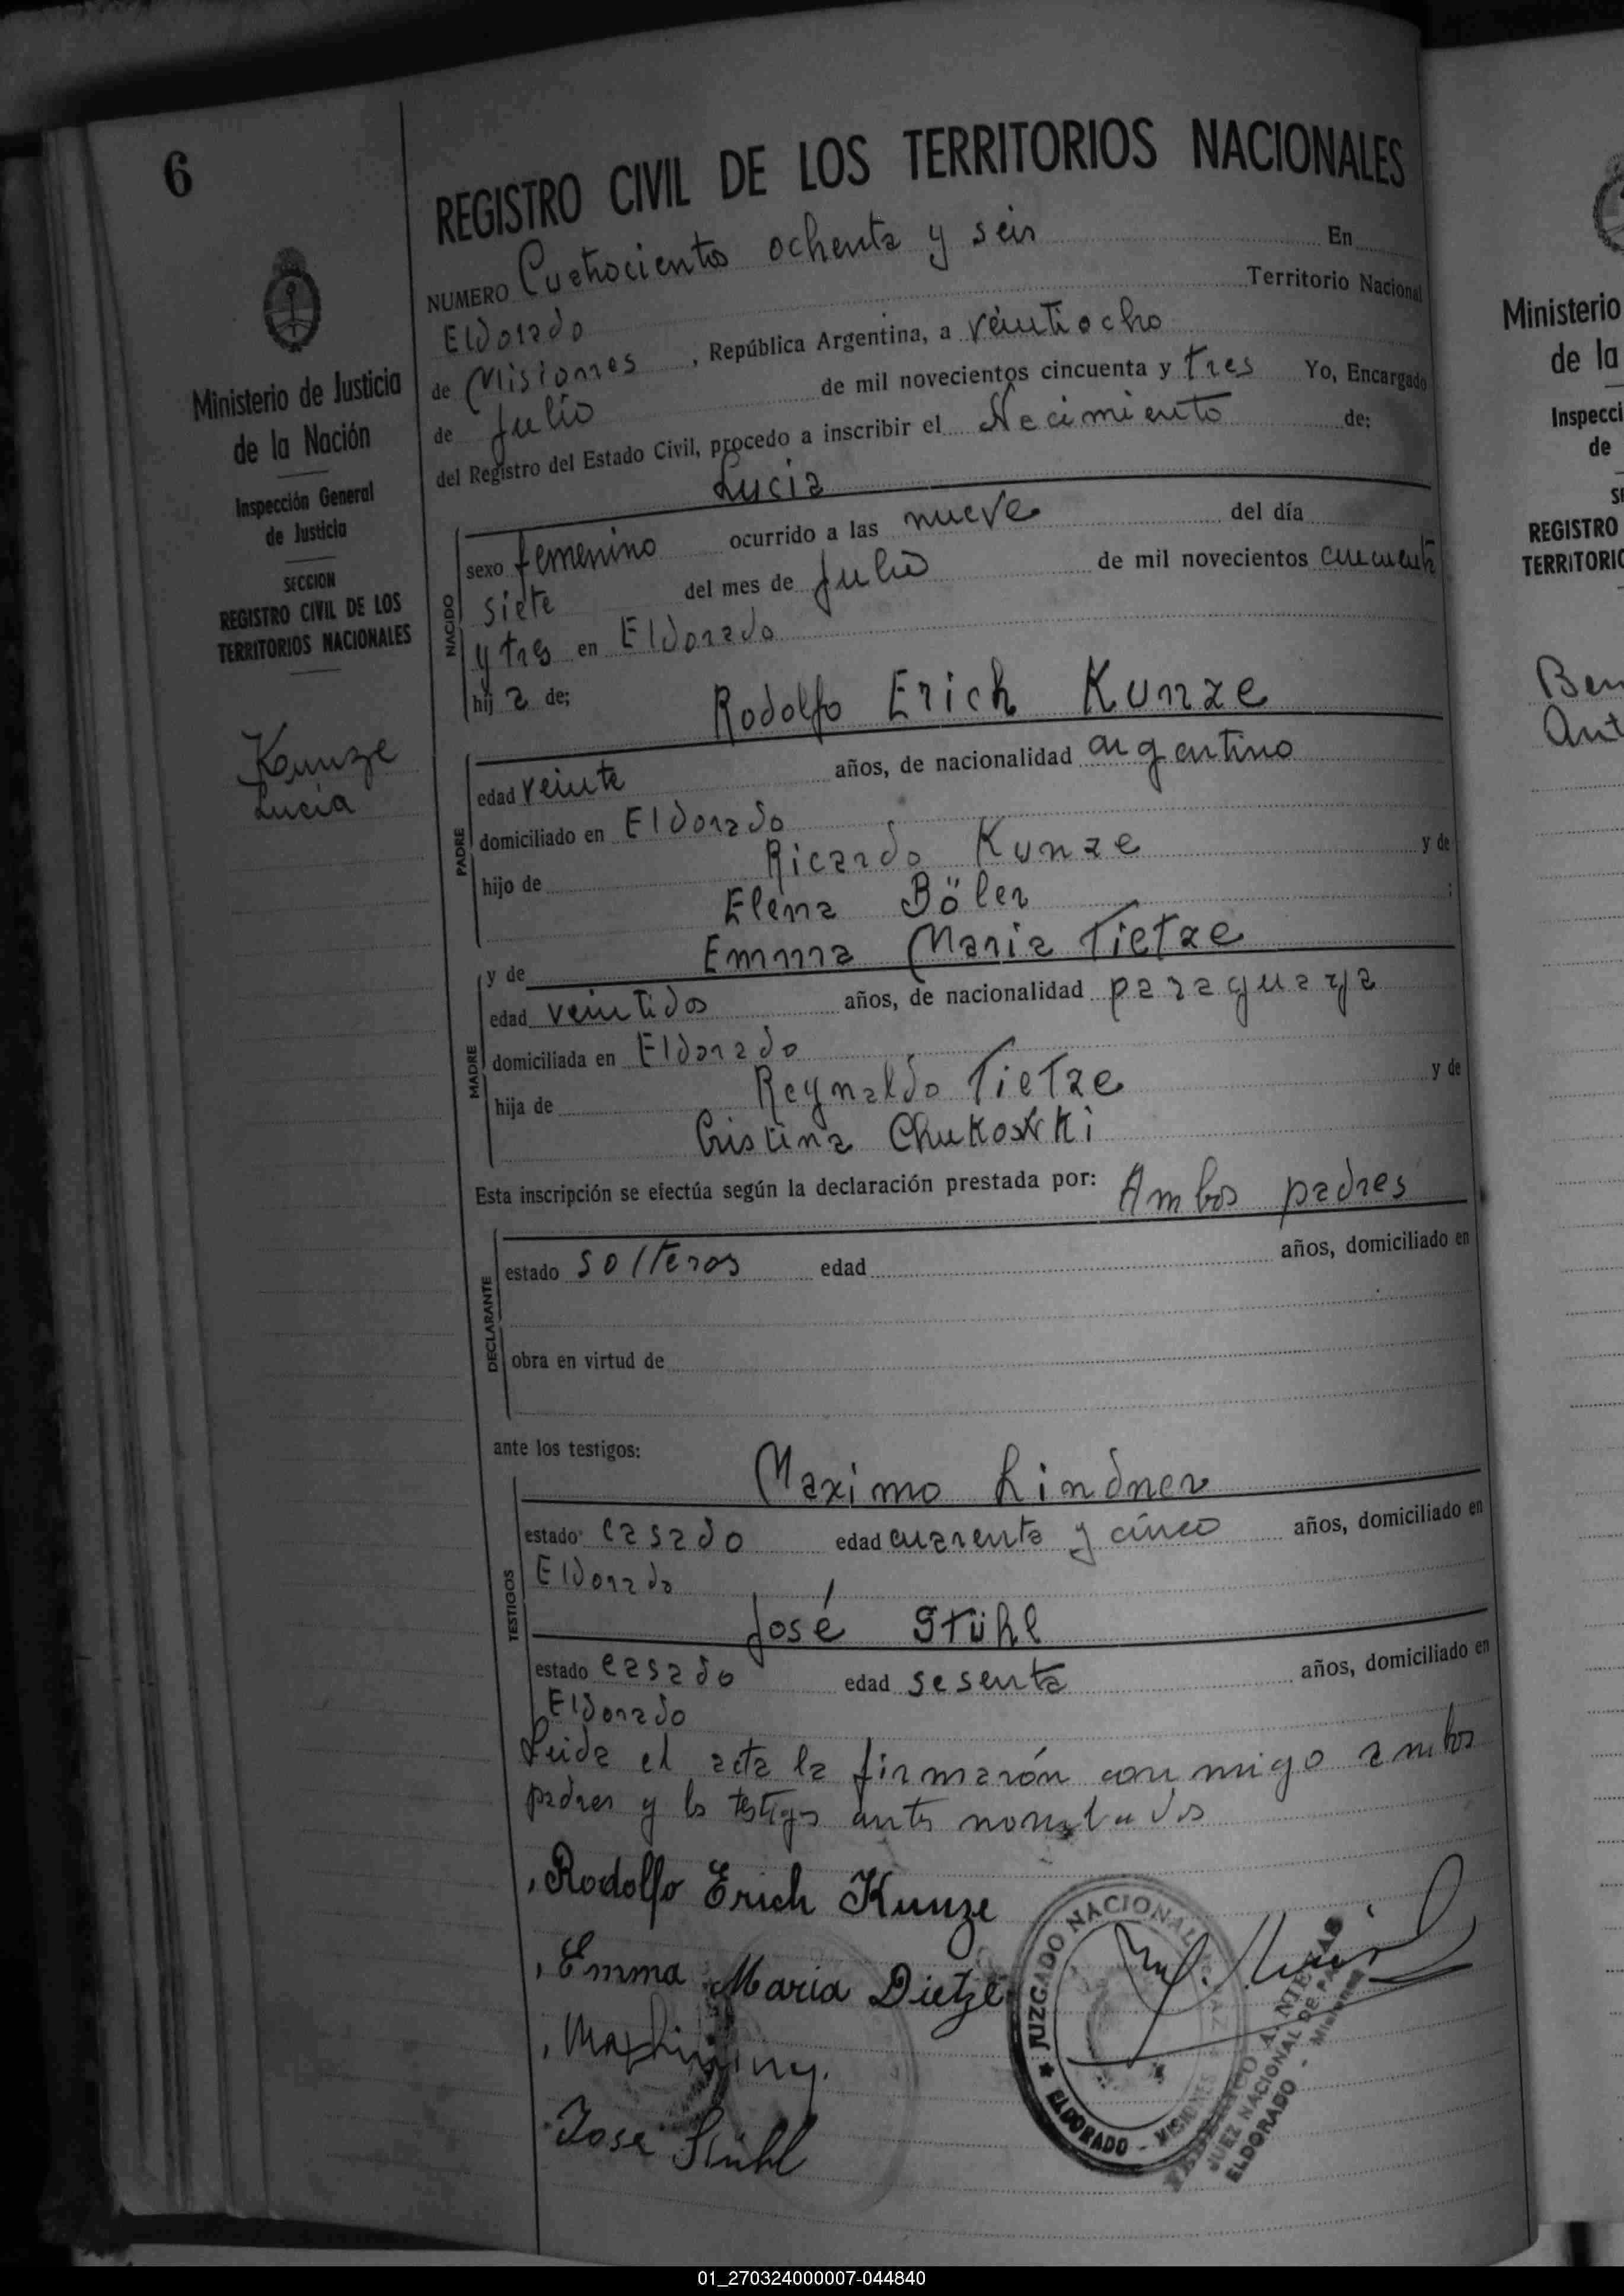 6
REGISTRO CIVIL DE LOS TERRITORIOS NACIONALES
NUMERO Cuatrocientos ochenta y seis En
Eldorado Territorio Nacional
de Misiones, República Argentina, a veintiocho
de Julio de mil novecientos cincuenta y tres Yo, Encargado
del Registro del Estado Civil, procedo a inscribir el Nacimiento de:
Lucia
NACIDO
sexo femenino ocurrido a las nueve del día
siete del mes de Julio de mil novecientos cincuenta
y tres en Eldorado
hij a de;
Rodolfo Erich Kunze
PADRE
edad veinte años, de nacionalidad argentino
domiciliado en Eldorado
hijo de Ricardo Kunze y de
Elena Böler ;
y de Emma Maria Tietze
MADRE
edad veintidos años, de nacionalidad paraguaya
domiciliada en Eldorado
hija de Reynaldo Tietze y de
Cristina
Esta inscripción se efectúa según la declaración prestada por: Ambos padres
DECLARANTE
estado solteros edad años, domiciliado en
obra en virtud de
ante los testigos:
Maximo Lindner
TESTIGOS
estado casado edad cuarenta y cinco años, domiciliado en
Eldorado
José Stühl
estado casado edad sesenta años, domiciliado en
Eldorado
Leida el acta la firmarón conmigo ambos
padres y los testigos antes nombrados
Rodolfo Erich Kunze
Emma Maria Dietze
José Stühl
JUZGADO NACIONAL
ELDORADO - MISIONES
A. NIEVAS
JUEZ NACIONAL DE PAZ
ELDORADO - Misiones
Ministerio de Justicia
de la Nación
Inspección General
de Justicia
SECCION
REGISTRO CIVIL DE LOS
TERRITORIOS NACIONALES
Kunze
Lucía
Ministerio
de la
Inspecci
de
REGISTRO
TERRITORIO
Ben
Ant
01_270324000007-044840